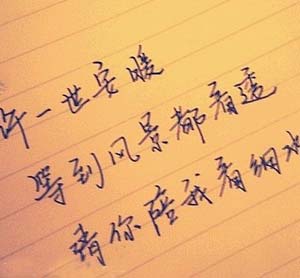 许一世安暖
等到风景都看透
请你陪我看细水